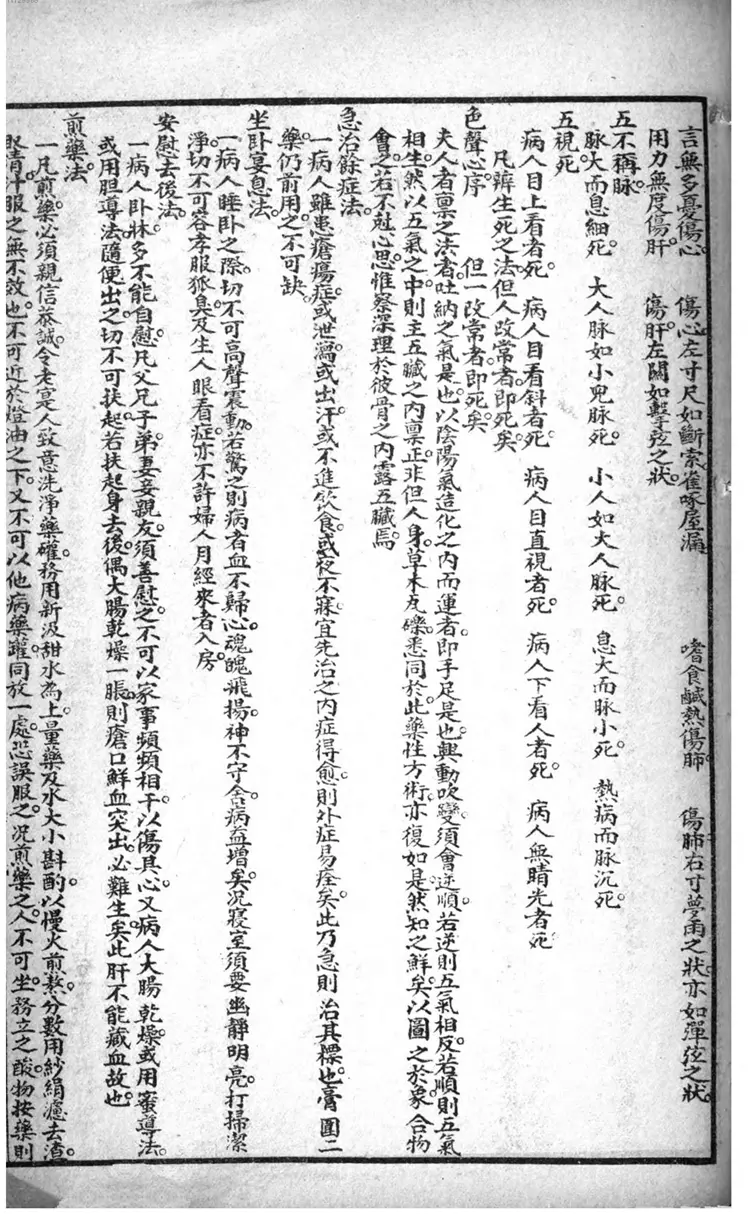 言無多憂傷心。　傷心左寸尺如斷索雀啄屋漏　嗜食鹹熱傷肺。　傷肺右寸夢雨之狀。亦如彈弦之狀。
用力無度傷肝。　傷肝左關如擊弦之狀。
五不稱脉。
脉大而息細死。　大人脉如小兒脉死。　小人如大人脉死。　息大而脉小死。　熱病而脉沉死。
五視死。
病人目上看者死。　病人目看斜者死。　病人目直視者死。　病人下看人者死。　病人無睛光者死
凡辨生死之法但人改常者。即死矣。
色聲心序。　但一改常者即死矣。
夫人者稟之法者。吐納之氣是也。以陰陽氣造化之內而運者。即手足是也。興動吹變。須會逆順若逆則五氣相反。若順則五氣
相生。然以五氣之中。則主五臟之內稟正。非但人身。草木瓦礫。悉同於此。藥性方術。亦復如是。然知之鮮矣。以圖之於象。合物
會之。若不剋心思惟察深理於彼骨之內露五臟焉。
急治餘症法。
一病人雖患瘡瘍症。或泄瀉。或出汗或不進飲食。或夜不寐。宜先治之內症得愈。則外症易痊矣。此乃急則治其標也。膏圍二
藥仍前用之。不可缺。
坐臥宴息法。
一病人睡臥之際。切不可高聲震動。若驚之則病者血不歸心。魂魄飛揚。神不守舍。病益增矣。況寢室須要幽靜明亮。打掃潔
淨。切不可容孝服狐臭。及生人眼看。症亦不許婦人月經來者入房。
安慰去後法。
一病人臥牀。多不能自慰。凡父兄子弟。妻妾親友。須善慰之。不可以家事頻頻相干。以傷其心。又病人大腸乾燥。或用蜜導法。
或用胆導法。隨便出之。切不可扶起。若扶起身去後。偶大腸乾燥一脹。則瘡口鮮血突出。必難生矣。此肝不能藏血故也。
煎藥法。
一凡煎藥必須親信恭誠。令老寔人致意洗淨藥確。務用新汲甜水為上。量藥及水大小斟酌。以慢火煎熬。分數用紗絹濾去渣。
取清汁服之。無不效也。不可近於燈油之下。又不可以他病藥罐。同放一處。恐誤服之。況煎藥之人。不可坐。務立之。酸物按藥則